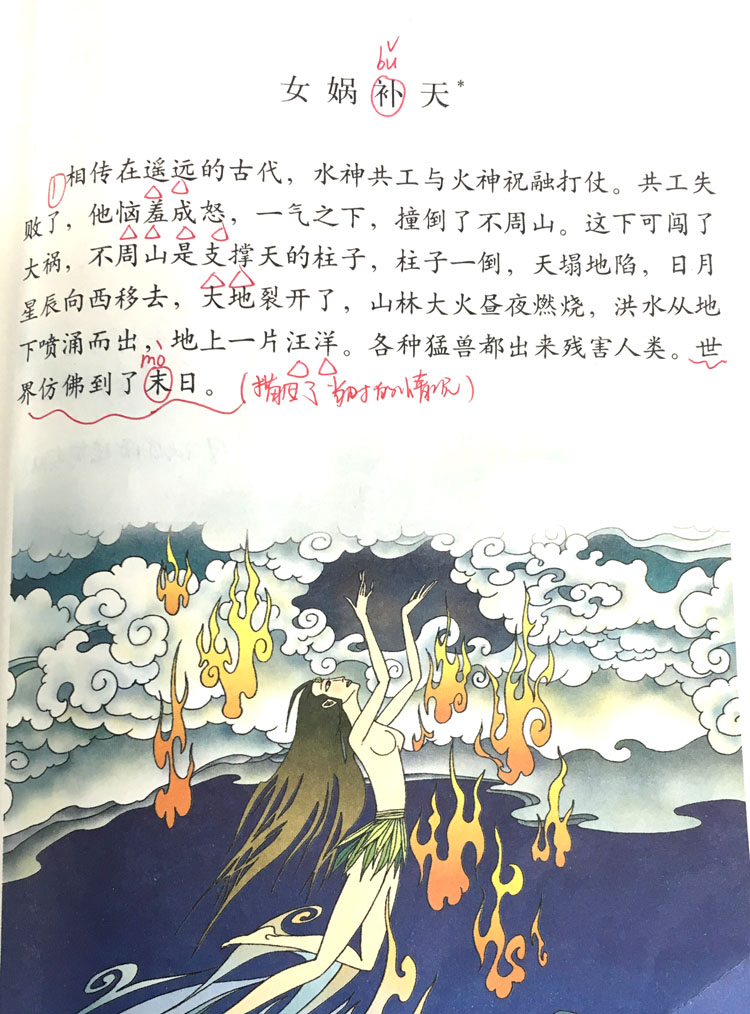 bǔ
女娲补天*
①相传在遥远的古代，水神共工与火神祝融打仗。共工失
败了，他恼羞成怒，一气之下，撞倒了不周山。这下可闯了
大祸，不周山是支撑天的柱子，柱子一倒，天塌地陷，日月
星辰向西移去，大地裂开了，山林大火昼夜燃烧，洪水从地
下喷涌而出，地上一片汪洋。各种猛兽都出来残害人类。世
mò
界仿佛到了末日。（描写了当时的情况）